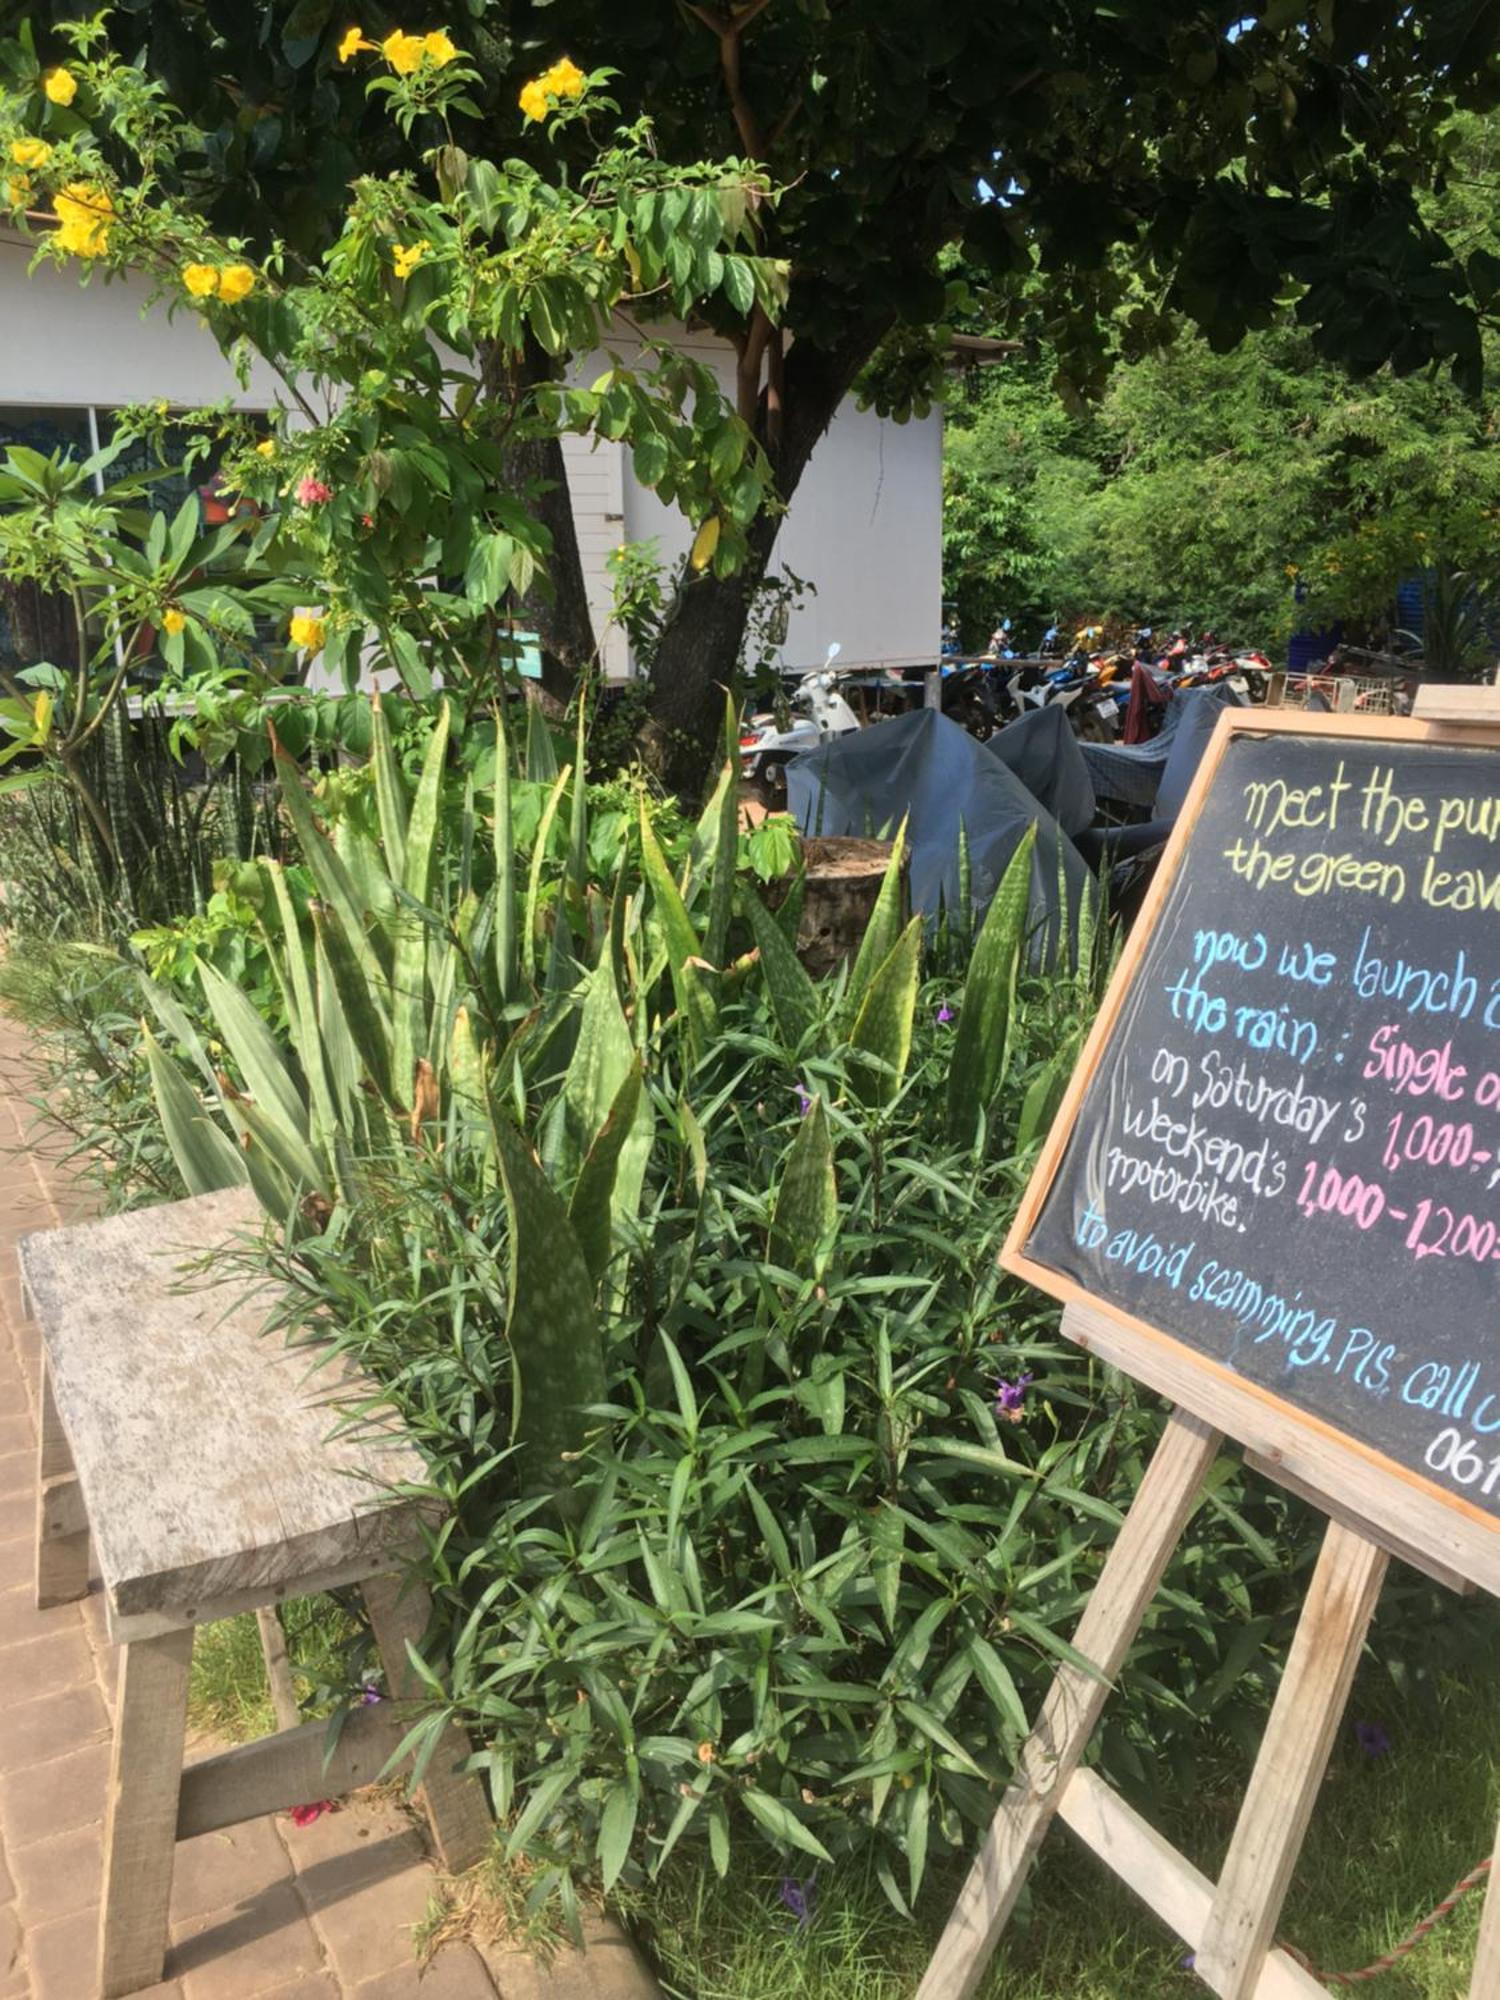 meet the
the green
now we launch
the rain : Single
on Saturday's 1,000-,
weekend's 1,000-1,200
motorbike.
to avoid scamming. Pls. call
061